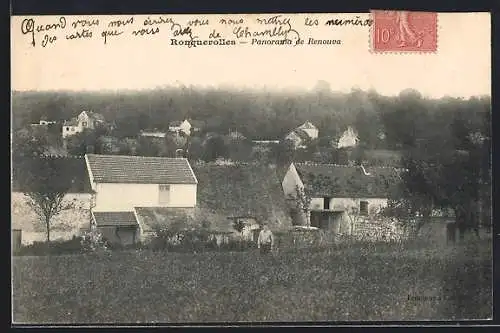 Quand vous nous écrivez vous nous mettrez les numéros
des cartes que vous avez de Chambly
Ronquerolles — Panorama de Renouva
10